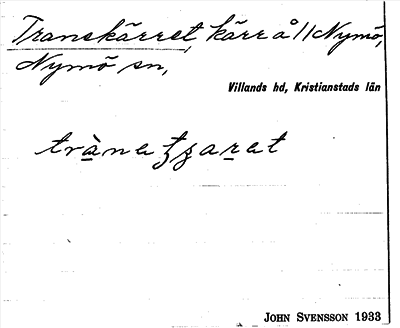 Transkärret, kärr å 11 Nymö,
Nymö sn,
Villands hd, Kristianstads län
trànatʒaret
JOHN SVENSSON 1933